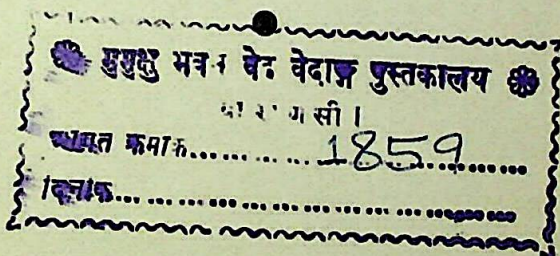 मुमुक्षु भवन वेद वेदाङ्ग पुस्तकालय
वा रा ण सी ।
आगत क्रमाक.................1859............
दिनांक.............................................